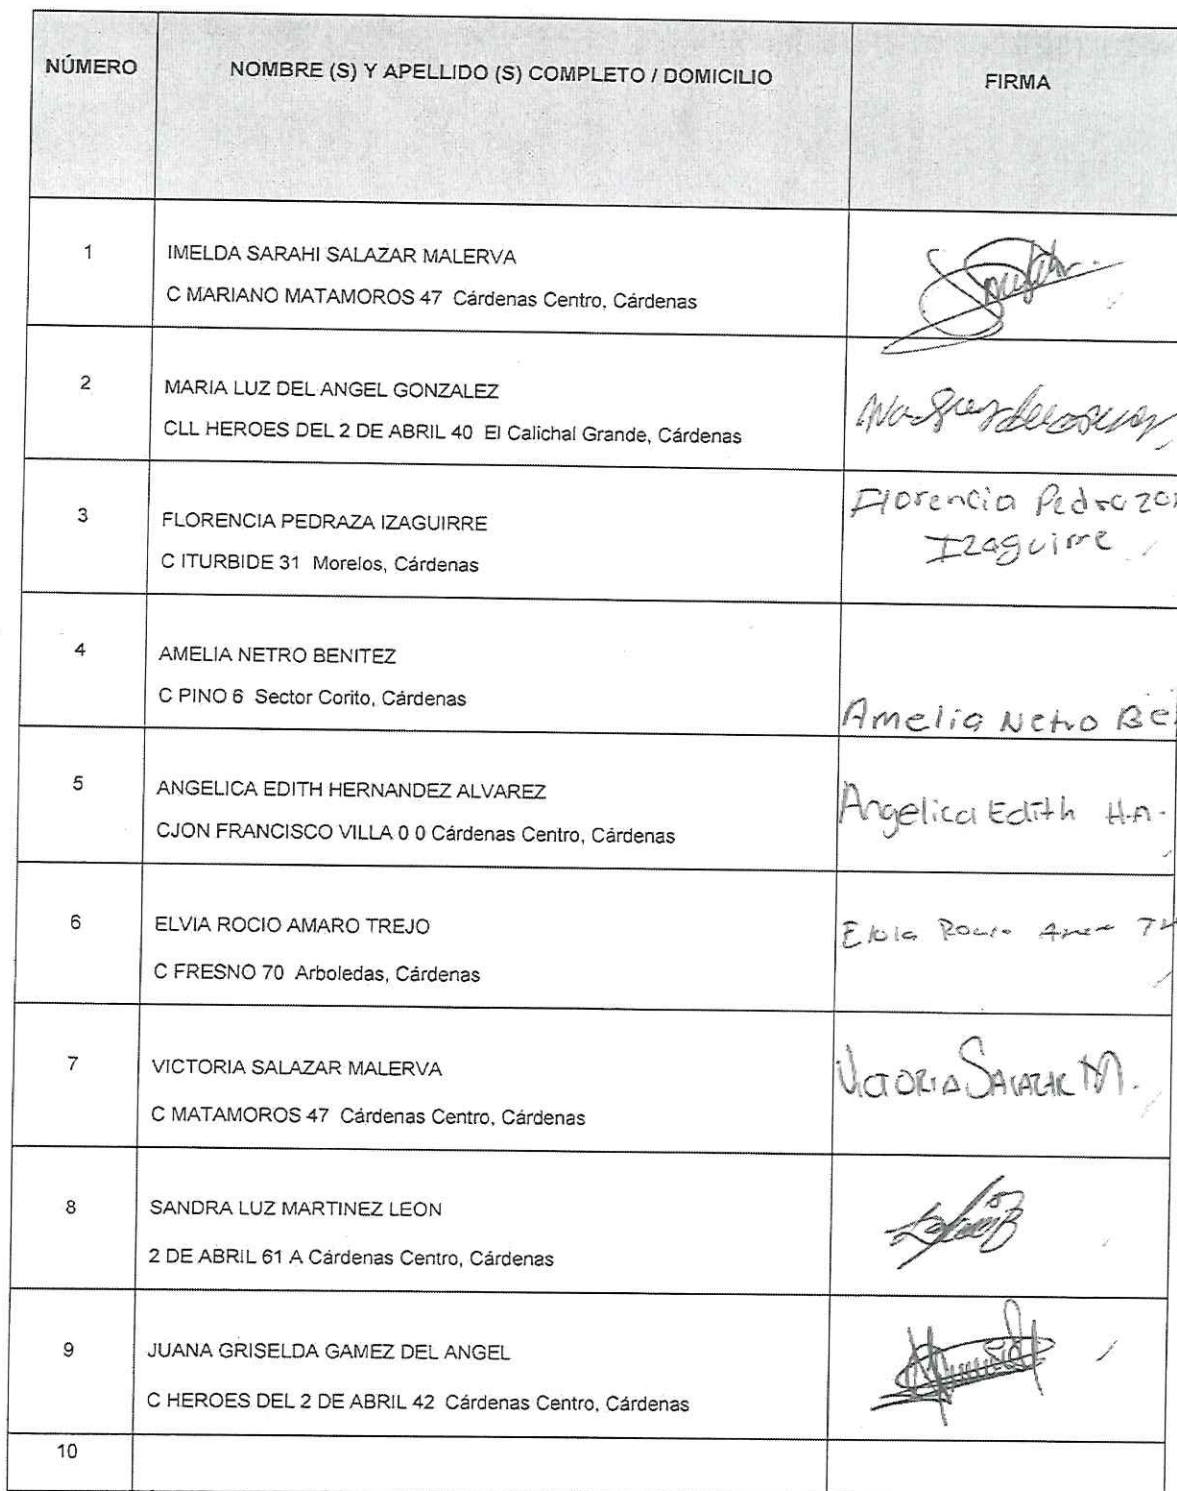 NÚMERO NOMBRE (S) Y APELLIDO (S) COMPLETO / DOMICILIO FIRMA
1 IMELDA SARAHI SALAZAR MALERVA
C MARIANO MATAMOROS 47 Cárdenas Centro, Cárdenas
2 MARIA LUZ DEL ANGEL GONZALEZ
CLL HEROES DEL 2 DE ABRIL 40 El Calichal Grande, Cárdenas
3 FLORENCIA PEDRAZA IZAGUIRRE
C ITURBIDE 31 Morelos, Cárdenas
Florencia Pedraza
Izaguirre
4 AMELIA NETRO BENITEZ
C PINO 6 Sector Corito, Cárdenas
Amelia Netro Be
5 ANGELICA EDITH HERNANDEZ ALVAREZ
CJON FRANCISCO VILLA 0 0 Cárdenas Centro, Cárdenas
Angelica Edith H.A.
6 ELVIA ROCIO AMARO TREJO
C FRESNO 70 Arboledas, Cárdenas
Elvia Rocio
7 VICTORIA SALAZAR MALERVA
C MATAMOROS 47 Cárdenas Centro, Cárdenas
VICTORIA SALAZAR M.
8 SANDRA LUZ MARTINEZ LEON
2 DE ABRIL 61 A Cárdenas Centro, Cárdenas
9 JUANA GRISELDA GAMEZ DEL ANGEL
C HEROES DEL 2 DE ABRIL 42 Cárdenas Centro, Cárdenas
10